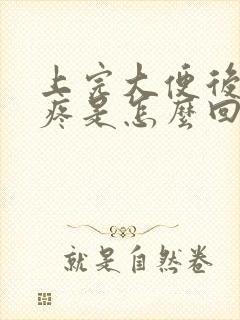 上完大便後
疼是怎麼回
就是自然卷